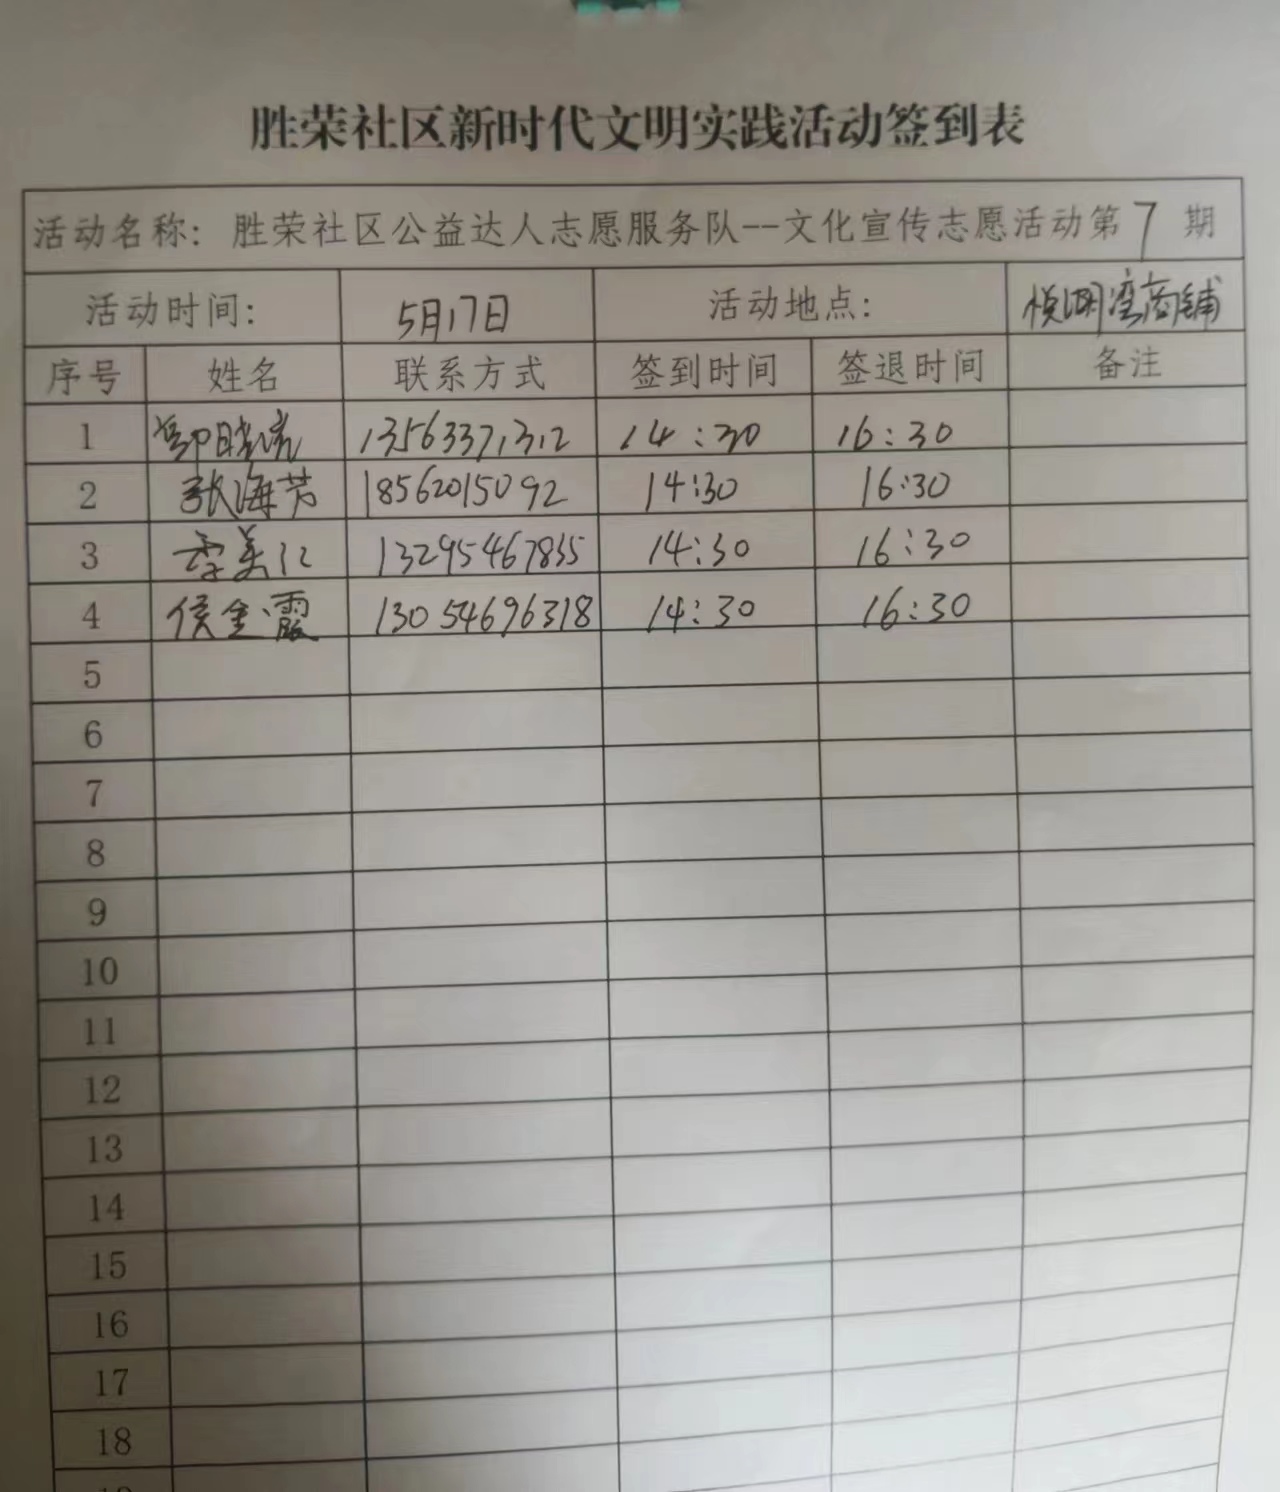 胜荣社区新时代文明实践活动签到表
活动名称：胜荣社区公益达人志愿服务队--文化宣传志愿活动第7期
活动时间： 5月17日 活动地点： 悦湖湾商铺
序号 姓名 联系方式 签到时间 签退时间 备注
1 13563371312 14:30 16:30
2 张海芳 18562015092 14:30 16:30
3 李美江 13295467835 14:30 16:30
4 侯金霞 13054696318 14:30 16:30
5
6
7
8
9
10
11
12
13
14
15
16
17
18